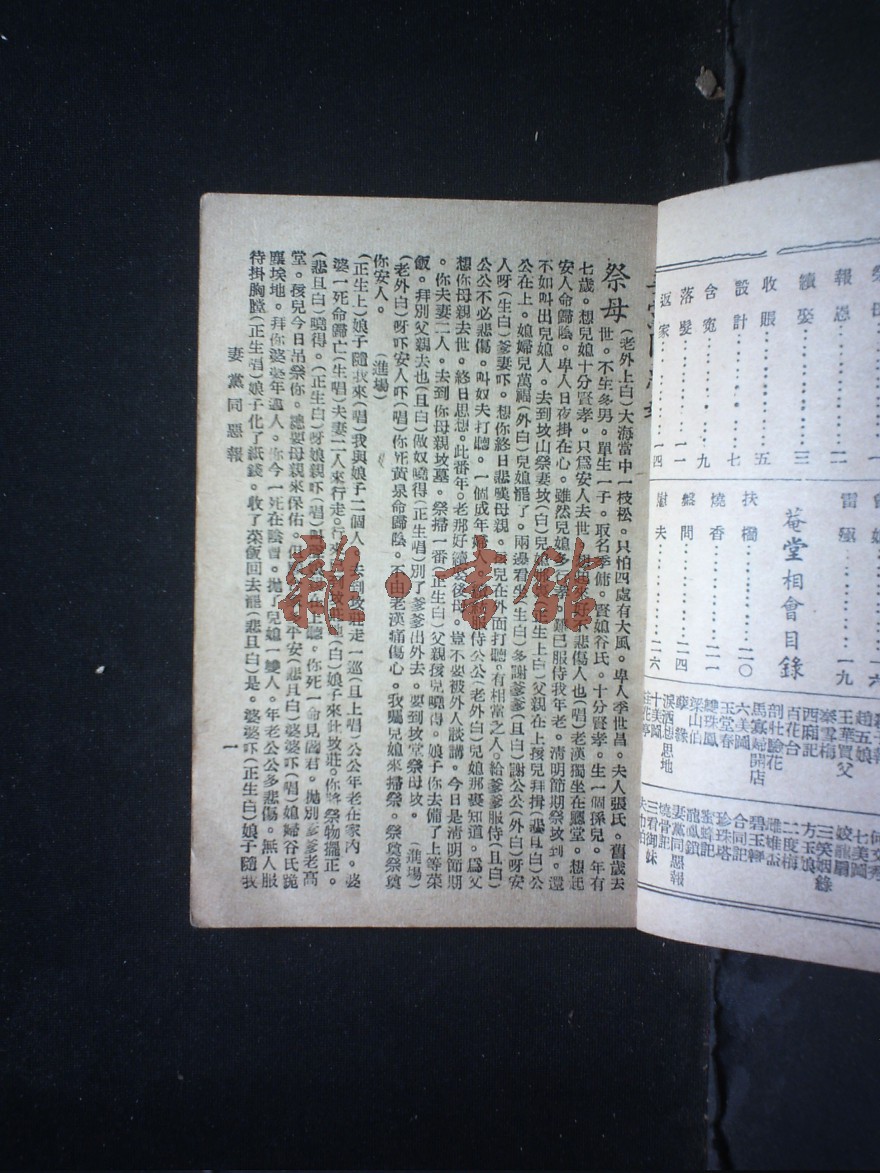 菴堂相會目錄
報
續娶……三
收賬……五
設計……七
含冤……九
落髮……一一
返家……一四
雷
一九
扶欄……二〇
燒香……二四
盤問……二一
慰夫……二六
趙五娘
王華買父
秦雪梅
西廂記
百花台
剖肚驗花
馬寡婦開店
六美圖
玉堂春
雙珠鳳
梁山伯
孽緣
淚洒相思地
十美圖
七美圖
絞龍扇
三笑姻緣
方玉娘
二度梅
雌雄盃
碧玉簪
合同記
珍珠塔
蜜蜂記
龍鳳鎖
妻黨同惡報
燒骨記
三看御妹
祭母
(老外上白)大海當中一枝松。只怕四處有大風。卑人季世昌。夫人張氏。舊歲去
世。不生多男。單生一子。取名季傭。賢媳谷氏。十分賢孝。生一個孫兒。年有
七歲。想兒媳十分賢孝。只爲安人去世。想起來好不悲傷人也(唱)老漢獨坐在廳堂。想起
安人命歸陰。卑人日夜掛在心。雖然兒媳多孝。難已服侍我年老。清明節期祭坟到。還
不如叫出兒媳人。去到坟山祭妻坟(白)兒媳(正生上白)父親在上孩兒拜揖(悲且白)公
公在上。媳婦兒萬福(外白)兒媳罷了。兩邊看坐(生白)多謝爹爹(且白)謝公公(外白)呀安
人呀(生白)爹妻吓。想你終日悲嘆母親。兒在外面打聽。有相當之人。給爹爹服侍(且白)
公公不必悲傷。叫奴夫打聽。一個成年人。服侍公公(老外白)兒媳那裏知道。爲父
想你母親去世。終日思想。此番年老那好續娶後母。豈不要被外人談講。今日是清明節期
。你夫妻二人。去到你母親坟墓。祭掃一番(正生白)父親孩兒曉得。娘子你去備了上等菜
飯。拜別父親去也(且白)做奴曉得(正生唱)別了爹爹出外去。要到坟堂祭母坟。(進場)
(老外白)呀吓安人吓(唱)你死黃泉命歸陰。不由老漢痛傷心。我囑兒媳來掃祭。祭奠祭奠
你安人。(進場)
(正生上)娘子隨我來(唱)我與娘子二個人。去到坟莊走一巡(且上唱)公公年老在家內。婆
婆一死命歸亡(生唱)夫妻二人來行走。行來坟莊地(白)娘子來此坟莊。你將祭物擺正。
(悲且白)曉得。(正生白)呀娘親吓(唱)上聽。你死一命見閻君。拋別爹爹老高
堂。孩兒今日吊祭你。總要母親來保佑。平安(悲且白)婆婆吓(唱)媳婦谷氏跪
塵埃地。拜你婆婆年邁人。你今一死在陰曹。拋了兒媳一雙人。年老公公多悲傷。無人服
待掛胸膛(正生唱)娘子化了紙錢。收了菜飯回去罷(悲且白)是。婆婆吓(正生白)娘子隨我
妻黨同惡報
一
雜·書館